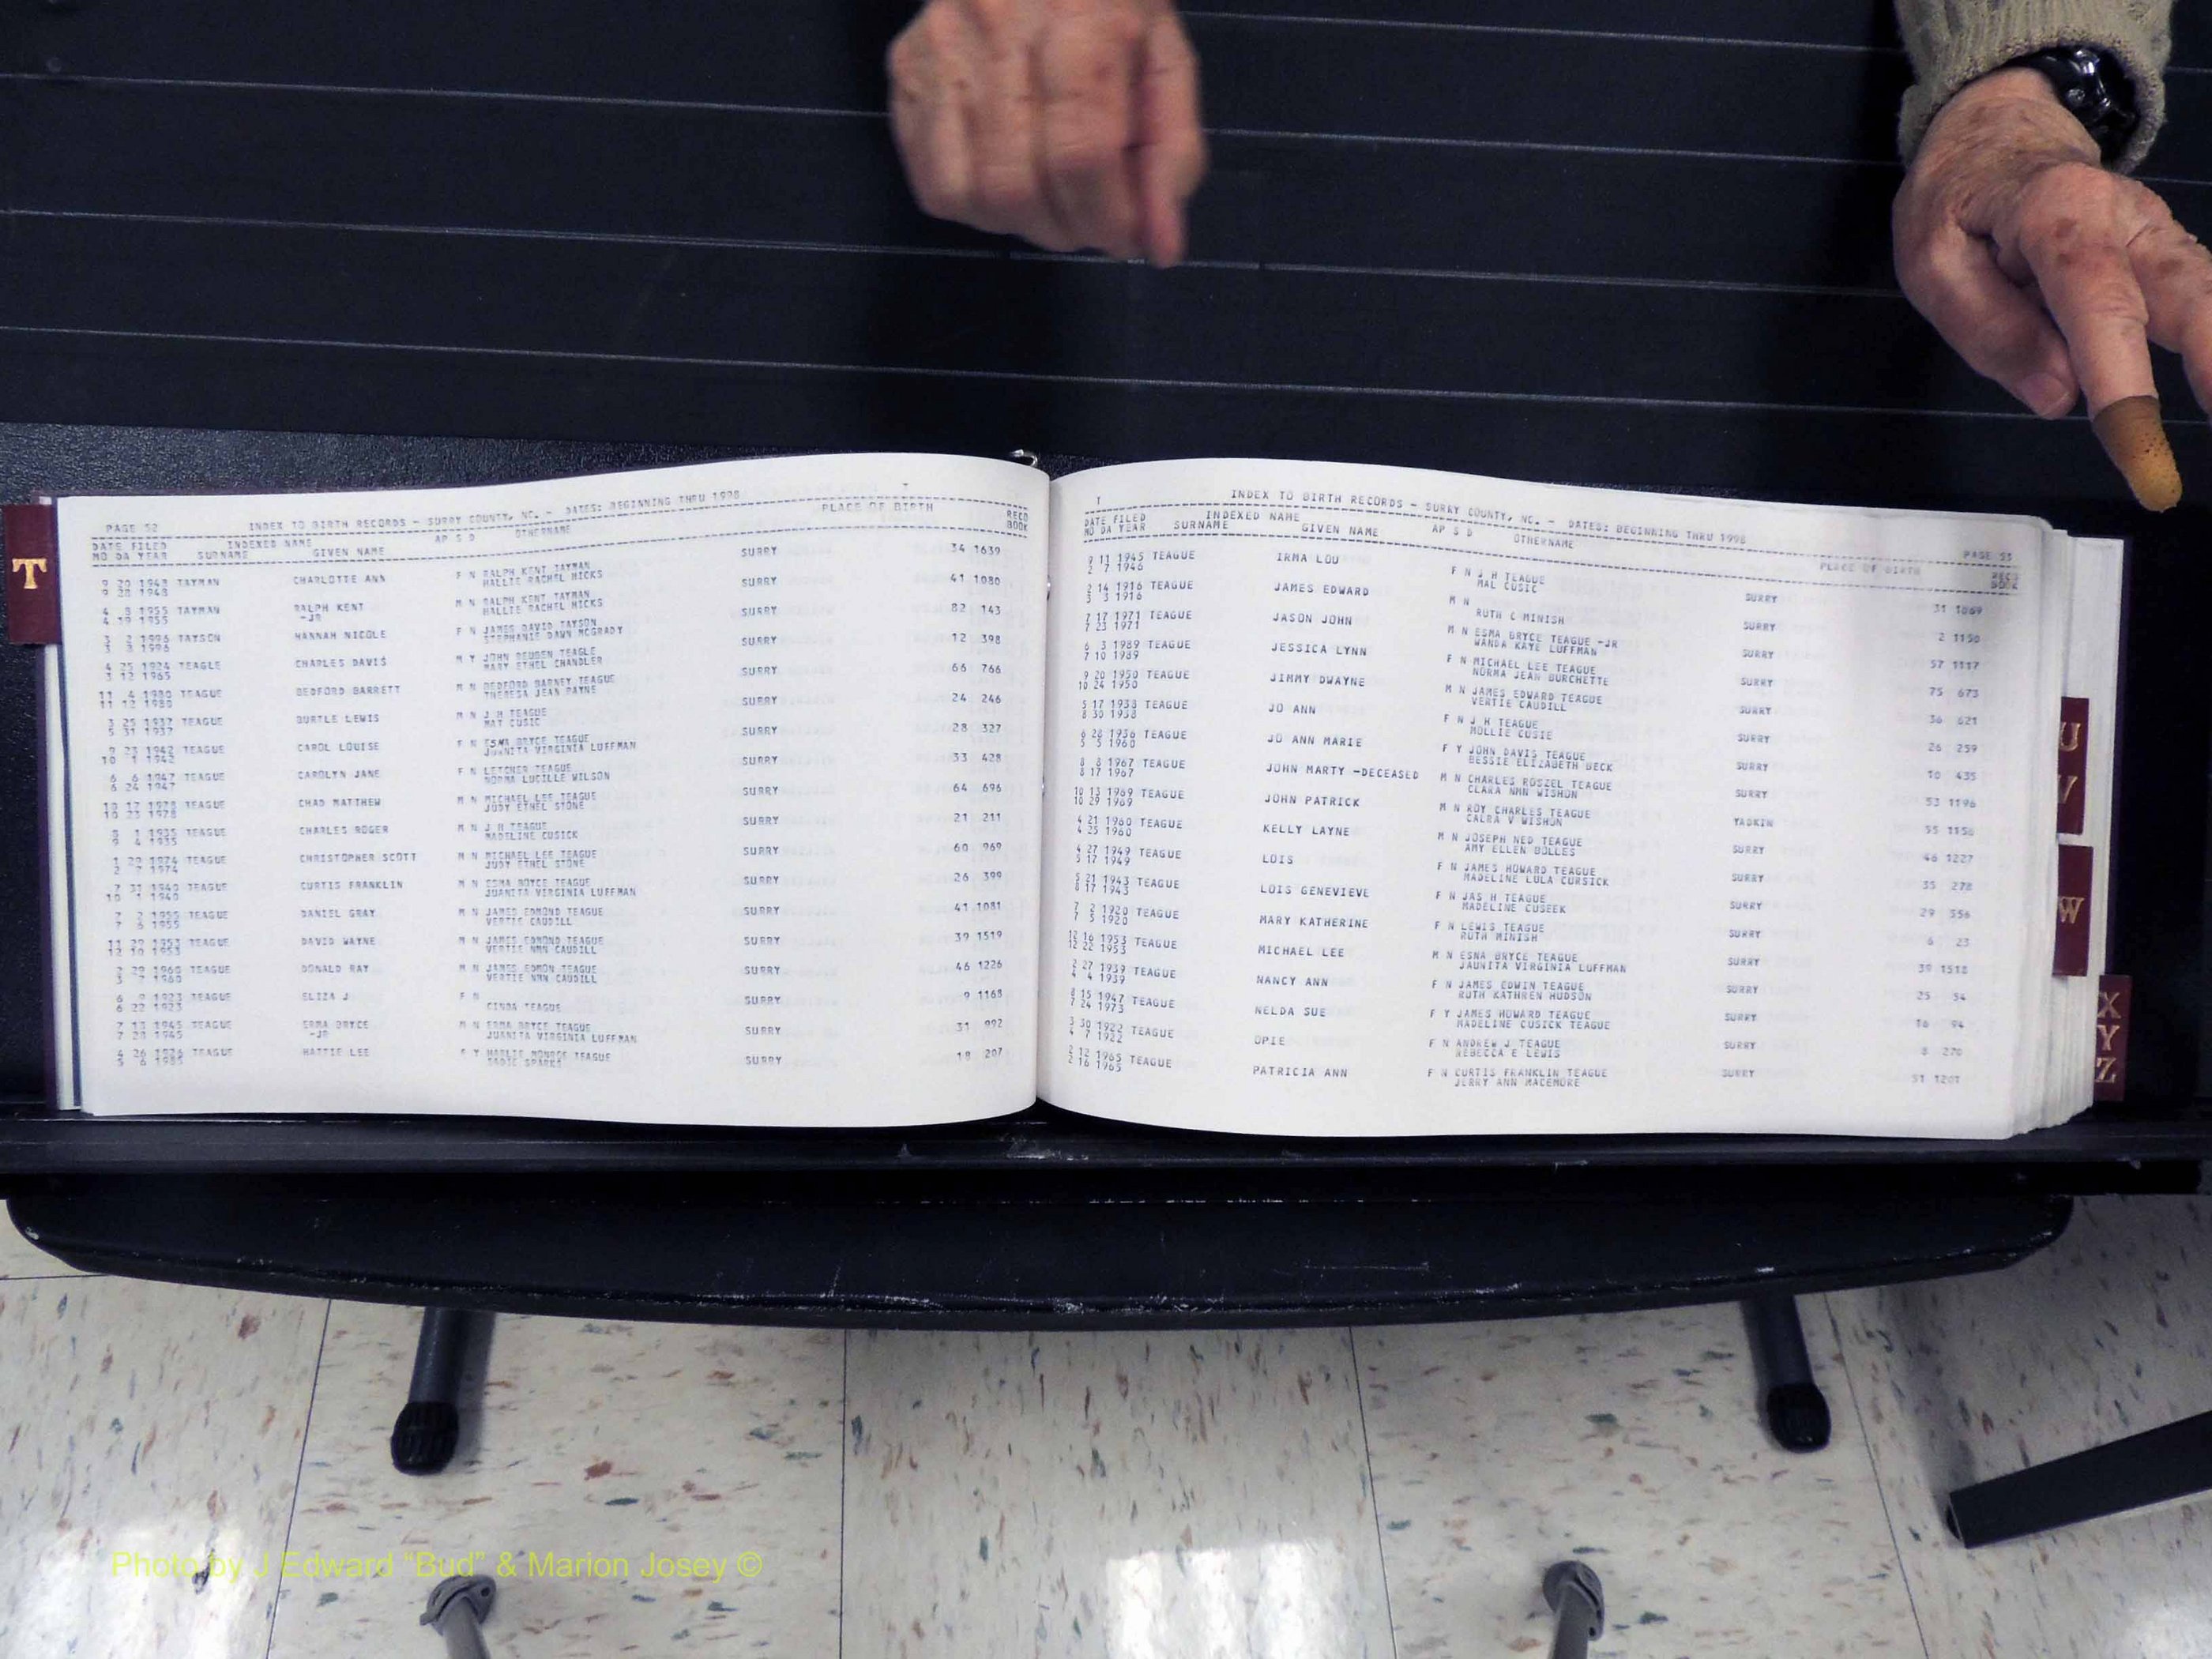 T
PAGE 52 INDEX TO BIRTH RECORDS - SURRY COUNTY, NC. - DATES: BEGINNING THRU 1998 T
DATE FILED INDEXED NAME AP S D OTHERNAME PLACE OF BIRTH RECD
MO DA YEAR SURNAME GIVEN NAME BOOK
9 20 1948 TAYMAN CHARLOTTE ANN F N RALPH KENT TAYMAN SURRY 34 1639
9 28 1948 HALLIE RACHEL HICKS
4 8 1955 TAYMAN RALPH KENT M N RALPH KENT TAYMAN SURRY 41 1080
4 19 1955 -JR HALLIE RACHEL HICKS
3 2 1996 TAYSON HANNAH NICOLE F N JAMES DAVID TAYSON SURRY 82 143
3 8 1996 STEPHANIE DAWN MCGRADY
4 25 1924 TEAGLE CHARLES DAVIS M Y JOHN REUBEN TEAGLE SURRY 12 398
3 12 1965 MARY ETHEL CHANDLER
11 4 1980 TEAGUE BEDFORD BARRETT M N BEDFORD BARNEY TEAGUE SURRY 66 766
11 12 1980 THERESA JEAN PAYNE
3 25 1937 TEAGUE BURTLE LEWIS M N J H TEAGUE SURRY 24 246
5 31 1937 MAT CUSIC
9 23 1942 TEAGUE CAROL LOUISE F N ESMA BRYCE TEAGUE SURRY 28 327
10 1 1942 JUANITA VIRGINIA LUFFMAN
6 6 1947 TEAGUE CAROLYN JANE F N LETCHER TEAGUE SURRY 33 428
6 24 1947 NORMA LUCILLE WILSON
10 17 1978 TEAGUE CHAD MATTHEW M N MICHAEL LEE TEAGUE SURRY 64 696
10 23 1978 JUDY ETHEL STONE
1 1935 TEAGUE CHARLES ROGER M N J H TEAGUE SURRY 21 211
9 4 1935 MADELINE CUSICK
1 29 1974 TEAGUE CHRISTOPHER SCOTT M N MICHAEL LEE TEAGUE SURRY 60 969
2 1974 JUDY ETHEL STONE
7 31 1940 TEAGUE CURTIS FRANKLIN M N ESMA BRYCE TEAGUE SURRY 26 399
10 1 1940 JUANITA VIRGINIA LUFFMAN
7 2 1955 TEAGUE DANIEL GRAY M N JAMES EDMOND TEAGUE SURRY 41 1081
7 6 1955 VERTIE CAUDILL
11 29 1953 TEAGUE DAVID WAYNE M N JAMES EDMOND TEAGUE SURRY 39 1519
12 10 1953 VERTIE NMN CAUDILL
2 29 1960 TEAGUE DONALD RAY M N JAMES EDMON TEAGUE SURRY 46 1226
3 7 1960 VERTIE NMN CAUDILL
6 9 1923 TEAGUE ELIZA J F N SURRY 9 1168
6 22 1923 CINDA TEAGUE
7 13 1945 TEAGUE ESMA BRYCE M N ESMA BRYCE TEAGUE SURRY 31 992
7 28 1945 -JR JUANITA VIRGINIA LUFFMAN
4 26 1926 TEAGUE HATTIE LEE F Y HARLIE MONROE TEAGUE SURRY 18 207
5 6 1985 SADIE SPARKS
T INDEX TO BIRTH RECORDS - SURRY COUNTY, NC. - DATES: BEGINNING THRU 1998 PAGE 53
DATE FILED INDEXED NAME AP S D OTHERNAME PLACE OF BIRTH RECD
MO DA YEAR SURNAME GIVEN NAME BOOK
9 11 1945 TEAGUE IRMA LOU F N J H TEAGUE SURRY 31 1069
2 7 1946 MAL CUSIC
2 14 1916 TEAGUE JAMES EDWARD M N SURRY 2 1150
3 3 1916 RUTH C MINISH
7 17 1971 TEAGUE JASON JOHN M N ESMA BRYCE TEAGUE -JR SURRY 57 1117
7 23 1971 WANDA KAYE LUFFMAN
6 3 1989 TEAGUE JESSICA LYNN F N MICHAEL LEE TEAGUE SURRY 75 673
7 10 1989 NORMA JEAN BURCHETTE
9 20 1950 TEAGUE JIMMY DWAYNE M N JAMES EDWARD TEAGUE SURRY 36 621
10 24 1950 VERTIE CAUDILL
5 17 1938 TEAGUE JO ANN F N J H TEAGUE SURRY 26 259
8 30 1938 MOLLIE CUSIE
6 28 1936 TEAGUE JO ANN MARIE F Y JOHN DAVIS TEAGUE SURRY 10 435
5 5 1960 BESSIE ELIZABETH BECK
8 8 1967 TEAGUE JOHN MARTY -DECEASED M N CHARLES ROSZEL TEAGUE SURRY 53 1196
8 17 1967 CLARA NMN WISHON
10 13 1969 TEAGUE JOHN PATRICK M N ROY CHARLES TEAGUE YADKIN 55 1156
10 29 1969 CALRA V WISHON
4 21 1960 TEAGUE KELLY LAYNE M N JOSEPH NED TEAGUE SURRY 46 1227
4 25 1960 AMY ELLEN BOLLES
4 27 1949 TEAGUE LOIS F N JAMES HOWARD TEAGUE SURRY 35 278
5 17 1949 MADELINE LULA CURSICK
5 21 1943 TEAGUE LOIS GENEVIEVE F N JAS H TEAGUE SURRY 29 556
8 17 1943 MADELINE CUSEEK
7 2 1920 TEAGUE MARY KATHERINE F N LEWIS TEAGUE SURRY 6 23
7 5 1920 RUTH MINISH
12 16 1953 TEAGUE MICHAEL LEE M N ESNA BRYCE TEAGUE SURRY 39 1518
12 22 1953 JAUNITA VIRGINIA LUFFMAN
2 27 1939 TEAGUE NANCY ANN F N JAMES EDWIN TEAGUE SURRY 25 54
4 4 1939 RUTH KATHREN HUDSON
8 15 1947 TEAGUE NELDA SUE F Y JAMES HOWARD TEAGUE SURRY 16 94
7 24 1973 MADELINE CUSICK TEAGUE
3 30 1922 TEAGUE OPIE F N ANDREW J TEAGUE SURRY 8 270
4 7 1922 REBECCA E LEWIS
2 12 1965 TEAGUE PATRICIA ANN F N CURTIS FRANKLIN TEAGUE SURRY 51 1201
2 16 1965 JERRY ANN MACEMORE
U
V
W
X
Y
Z
Photo by J Edward “Bud” & Marion Josey ©